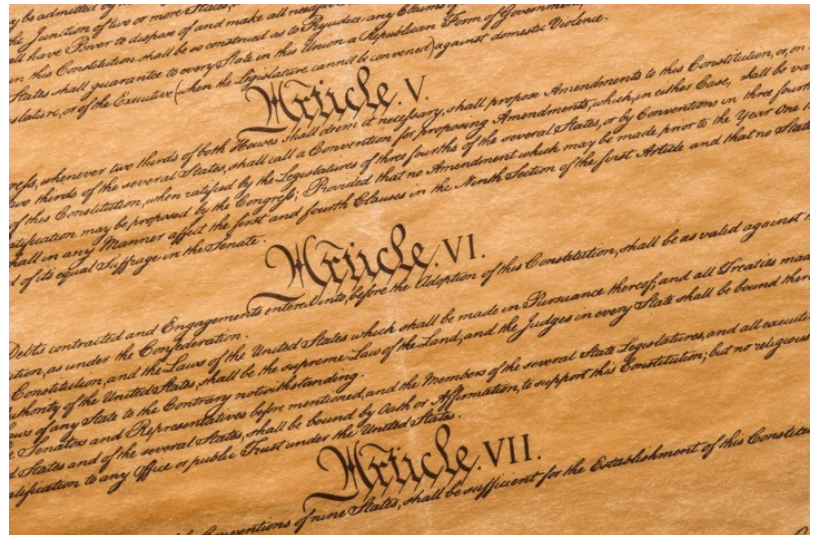 y be admitted by
the Junction of two or more States,
all have Power to dispose of and make all needful
in this Constitution shall be so construed as to Prejudice any Claims
States shall guarantee to every State in this Union a Republican Form of Government,
slature, or of the Executive (when the Legislature cannot be convened) against domestic Violence.
Article. V.
ress, whenever two thirds of both Houses shall deem it necessary, shall propose Amendments to this Constitution, or, on
two thirds of the several States, shall call a Convention for proposing Amendments, which, in either Case, shall be va
of this Constitution, when ratified by the Legislatures of three fourths of the several States, or by Conventions in three fourth
atification may be proposed by the Congress; Provided that no Amendment which may be made prior to the Year One
hall in any Manner affect the first and fourth Clauses in the Ninth Section of the first Article and that no State
d of its equal Suffrage in the Senate.
Article. VI.
Debts contracted and Engagements entered into, before the Adoption of this Constitution, shall be as valid against
tion, as under the Confederation.
Constitution, and the Laws of the United States which shall be made in Pursuance thereof; and all Treaties mad
uthority of the United States, shall be the supreme Law of the Land; and the Judges in every State shall be bound ther
aws of any State to the Contrary notwithstanding.
e Senators and Representatives before mentioned, and the Members of the several State Legislatures, and all executi
d States and of the several States, shall be bound by Oath or Affirmation, to support this Constitution; but no religious
alification to any Office or public Trust under the United States.
Article. VII.
Conventions of nine States, shall be sufficient for the Establishment of this Constitu